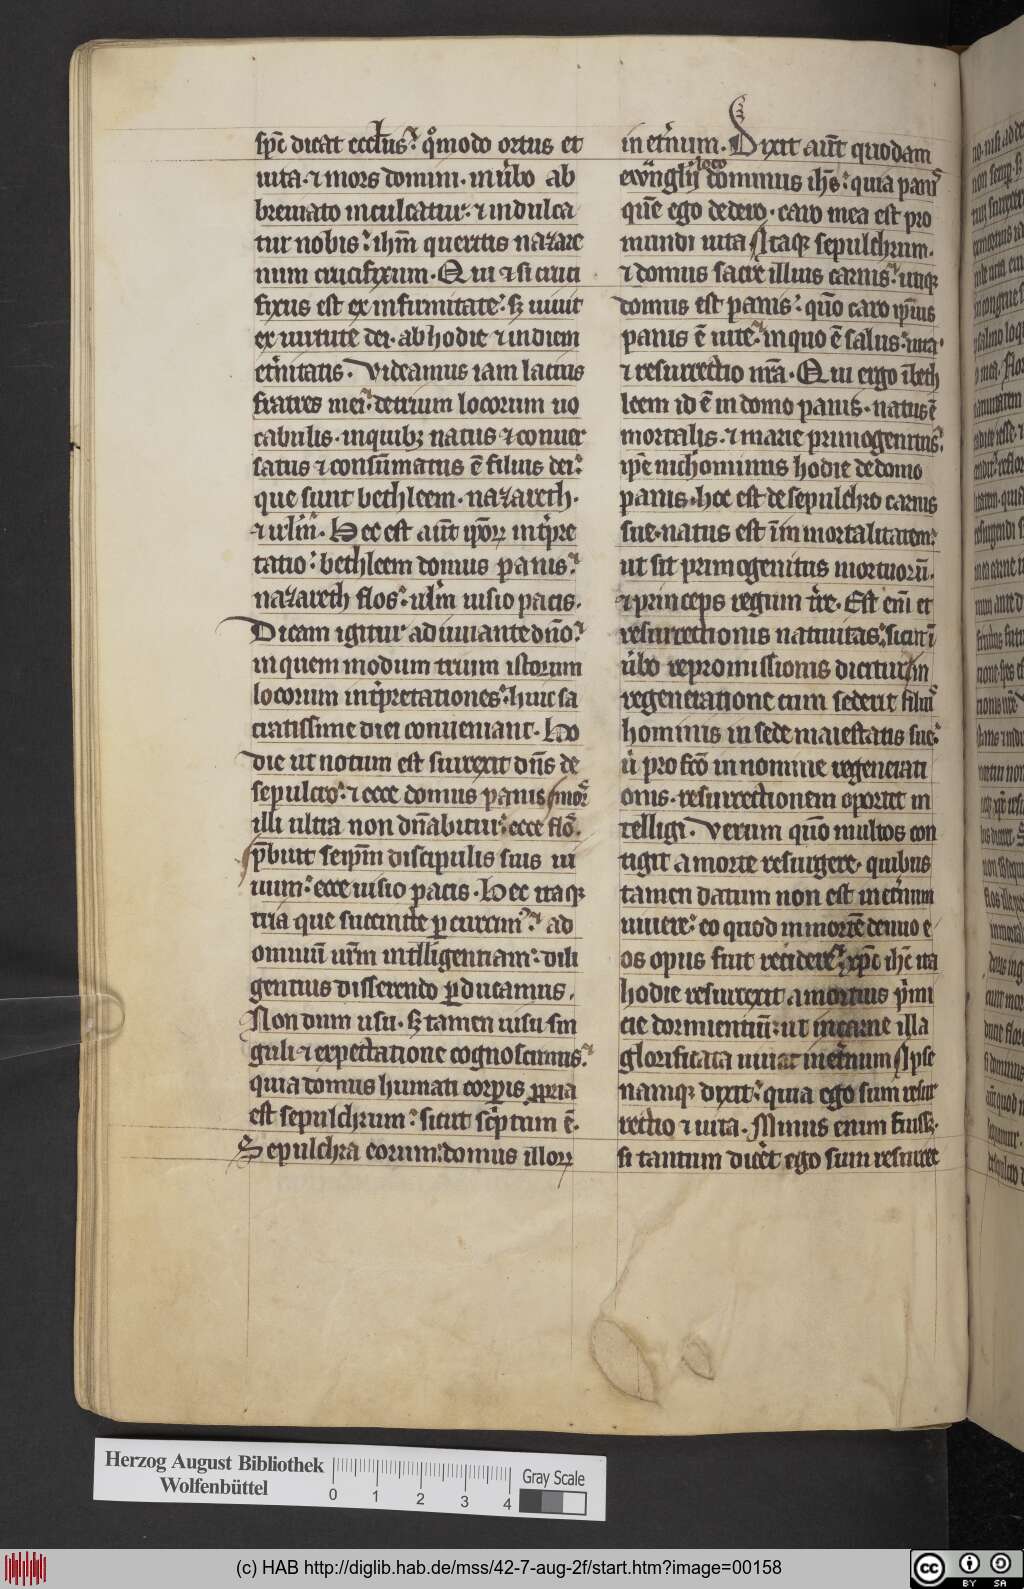 sp̄c dicāt eccl'us. qͦmodo ortus et
uita. ⁊ mors domini. in ůbo ab
breuiato inculcatur. ⁊ indulca
tur nobis. ihm̄ queritis nazare
num crucifixum. Qui ⁊ si cruci
fixus est ex infirmitate. sꝫ uiuit
ex uirtute dei. ab hodie ⁊ in diem
et̓nitatis. Videamus iam lacius
fratres mei. de trium locorum uo
cabulis. in quibꝫ natus ⁊ conuer
satus ⁊ consūmatus ē filius dei.
que sunt bethleem. nazareth.
⁊ irl'm. Hec est aūt ip̄oꝝ int̓pre
tatio. bethleem domus panis.
nazareth flos. irl'm uisio pacis.
Dicam igitur adiuuante dn̄o.
in quem modum trium istorum
locorum int̓pretationes. huic sa
cratissime diei conueniant. Ho
die ut notum est surrexit dn̄s de
sepulcro. ⁊ ecce domus panis mor̄
illi ultra non dn̄abitur. ecce flō.
p̄buit seip̄m discipulis suis ui
uum. ecce uisio pacis. Hec itaqꝫ
tria que succincte ꝑcurrimꝰ. ad
omniū ur̄m intelligentiam. dili
gentius disserendo ꝑducamus.
Non dum usu. sꝫ tamen uisu sin
guli ⁊ expectatione cognoscimus.
quia domus humati corꝑis ꝓpria
est sepulchrum. sicut sc̓ptum ē.
Sepulchra eorum domus illoꝝ
in et̓num. Dixit aūt quodam
ewāngl'ij loco dominus ihc̄. quia panis
quē ego dedero. caro mea est pro
mundi uita Itaqꝫ sepulchrum.
⁊ domus sacre illius carnis. utiqꝫ
domus est panis. quō caro ip̄ius
panis ē uite. in quo ē salus. uita.
⁊ resurrectio nr̄a. Qui ergo ī beth
leem id ē in domo panis. natus ē
mortalis. ⁊ marie primogenitus.
ip̄e nichominus hodie de domo
panis. hoc est de sepulchro carnis
sue. natus est ī immortalitatem.
ut sit primogenitus mortuorū.
⁊ princeps regum t̓re. Est eni et
resurrectionis natiuitas. sicut ī
ůbo repromissionis dicitur in
regeneratione cum sederit filiꝰ
hominis in sede maiestatis sue.
ů pro scō in nomine regenerati
onis. resurrectionem oportet in
telligi. Verum quō multos con
tigit a morte resurgere. quibus
tamen datum non est in et̓num
uiuere. eo quod in mortē denuo e
os opus fuit recidere. xp̄c ihc̄ ita
hodie resurrexit a mortuis p̓mi
cie dormientiū. ut in carne illa
glorificata uiuat in et̓num Ipse
namqꝫ dixit. quia ego sum resur
rectio ⁊ uita. Minus enim fuissꝫ.
si tantum dic̓et ego sum resurrec
Herzog August Bibliothek
Wolfenbüttel
0 1 2 3 4
Gray Scale
(c) HAB http://diglib.hab.de/mss/42-7-aug-2f/start.htm?image=00158
cc BY SA